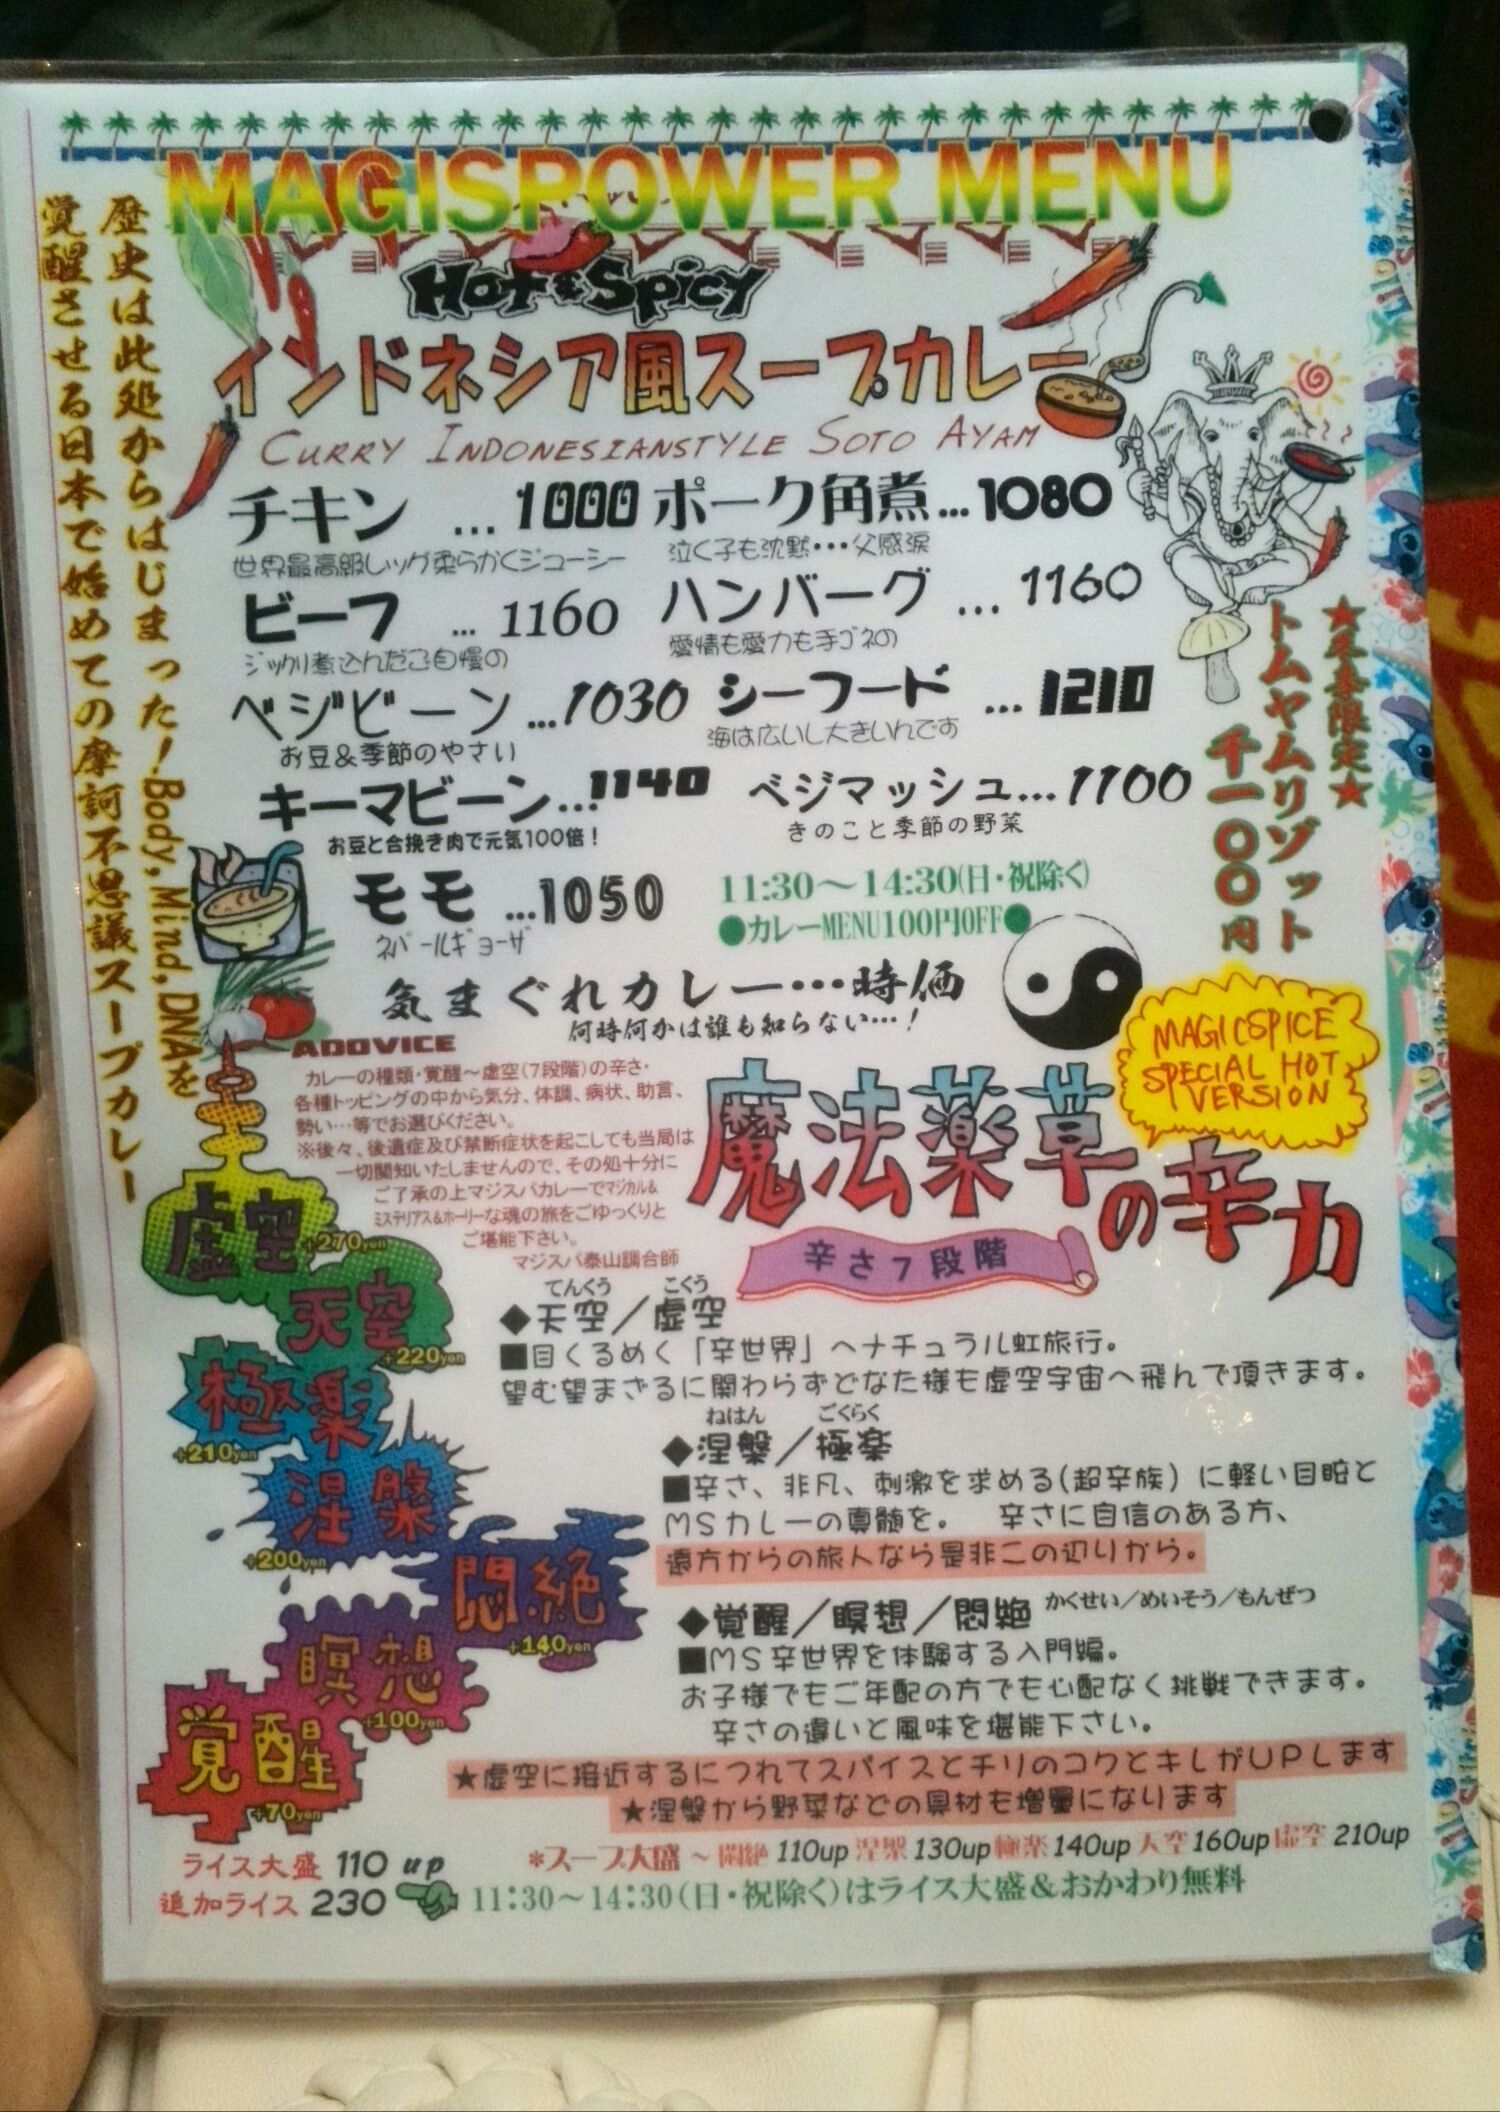 MAGISPOWER MENU
Hot & Spicy
インドネシア風スープカレー
CURRY INDONESIANSTYLE SOTO AYAM
歴史は此処からはじまった!Body,Mind,DNAを
覚醒させる日本で始めての摩訶不思議スープカレー
チキン ...1000
世界最高級レッグ柔らかくジューシー
ポーク角煮...1080
泣く子も沈黙・・・父感涙
ビーフ ...1160
ジックリ煮込んだご自慢の
ハンバーグ ...1160
愛情も愛力も手ゴネの
ベジビーン...1030
お豆&季節のやさい
シーフード ...1210
海は広いし大きいんです
キーマビーン...1140
お豆と合挽き肉で元気100倍!
ベジマッシュ...1100
きのこと季節の野菜
モモ ...1050
ネパールギョーザ
11:30〜14:30(日・祝除く)
●カレーMENU100円OFF●
気まぐれカレー…時価
何時何かは誰も知らない…!
限定★
トムヤムリゾット
千一〇〇円
ADOVICE
カレーの種類・覚醒〜虚空(7段階)の辛さ・
各種トッピングの中から気分、体調、病状、助言、
勢い…等でお選びください。
※後々、後遺症及び禁断症状を起こしても当局は
一切関知いたしませんので、その処十分に
ご了承の上マジスパカレーでマジカル&
ミステリアス&ホーリーな魂の旅をごゆっくりと
ご堪能下さい。
マジスパ泰山調合師
MAGICSPICE
SPECIAL HOT
VERSION
魔法薬草の辛力
辛さ7段階
虚空
+270yen
天空
+220yen
極楽
+210yen
涅槃
+200yen
悶絶
+140yen
瞑想
+100yen
覚醒
+70yen
てんくう こくう
◆天空/虚空
■目くるめく「辛世界」へナチュラル虹旅行。
望む望まざるに関わらずどなた様も虚空宇宙へ飛んで頂きます。
ねはん ごくらく
◆涅槃/極楽
■辛さ、非凡、刺激を求める(超辛族)に軽い目眩と
MSカレーの真髄を。 辛さに自信のある方、
遠方からの旅人なら是非この辺りから。
◆覚醒/瞑想/悶絶 かくせい/めいそう/もんぜつ
■MS辛世界を体験する入門編。
お子様でもご年配の方でも心配なく挑戦できます。
辛さの違いと風味を堪能下さい。
★虚空に接近するにつれてスパイスとチリのコクとキレがUPします
★涅槃から野菜などの具材も増量になります
*スープ大盛〜悶絶 110up 涅槃 130up 極楽 140up 天空 160up 虚空 210up
ライス大盛 110 up
追加ライス 230
11:30〜14:30(日・祝除く)はライス大盛&おかわり無料